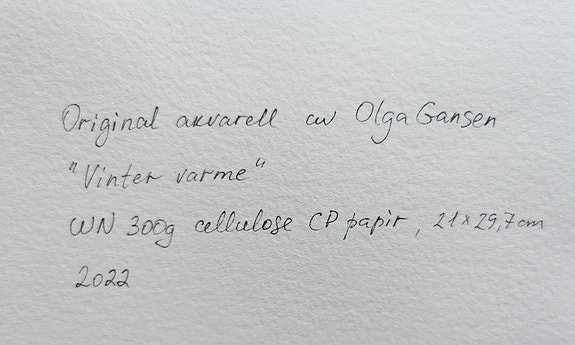 Original akvarell av Olga Gansen
"Vinter varme"
WN 300g cellulose CP papir, 21×29,7cm
2022